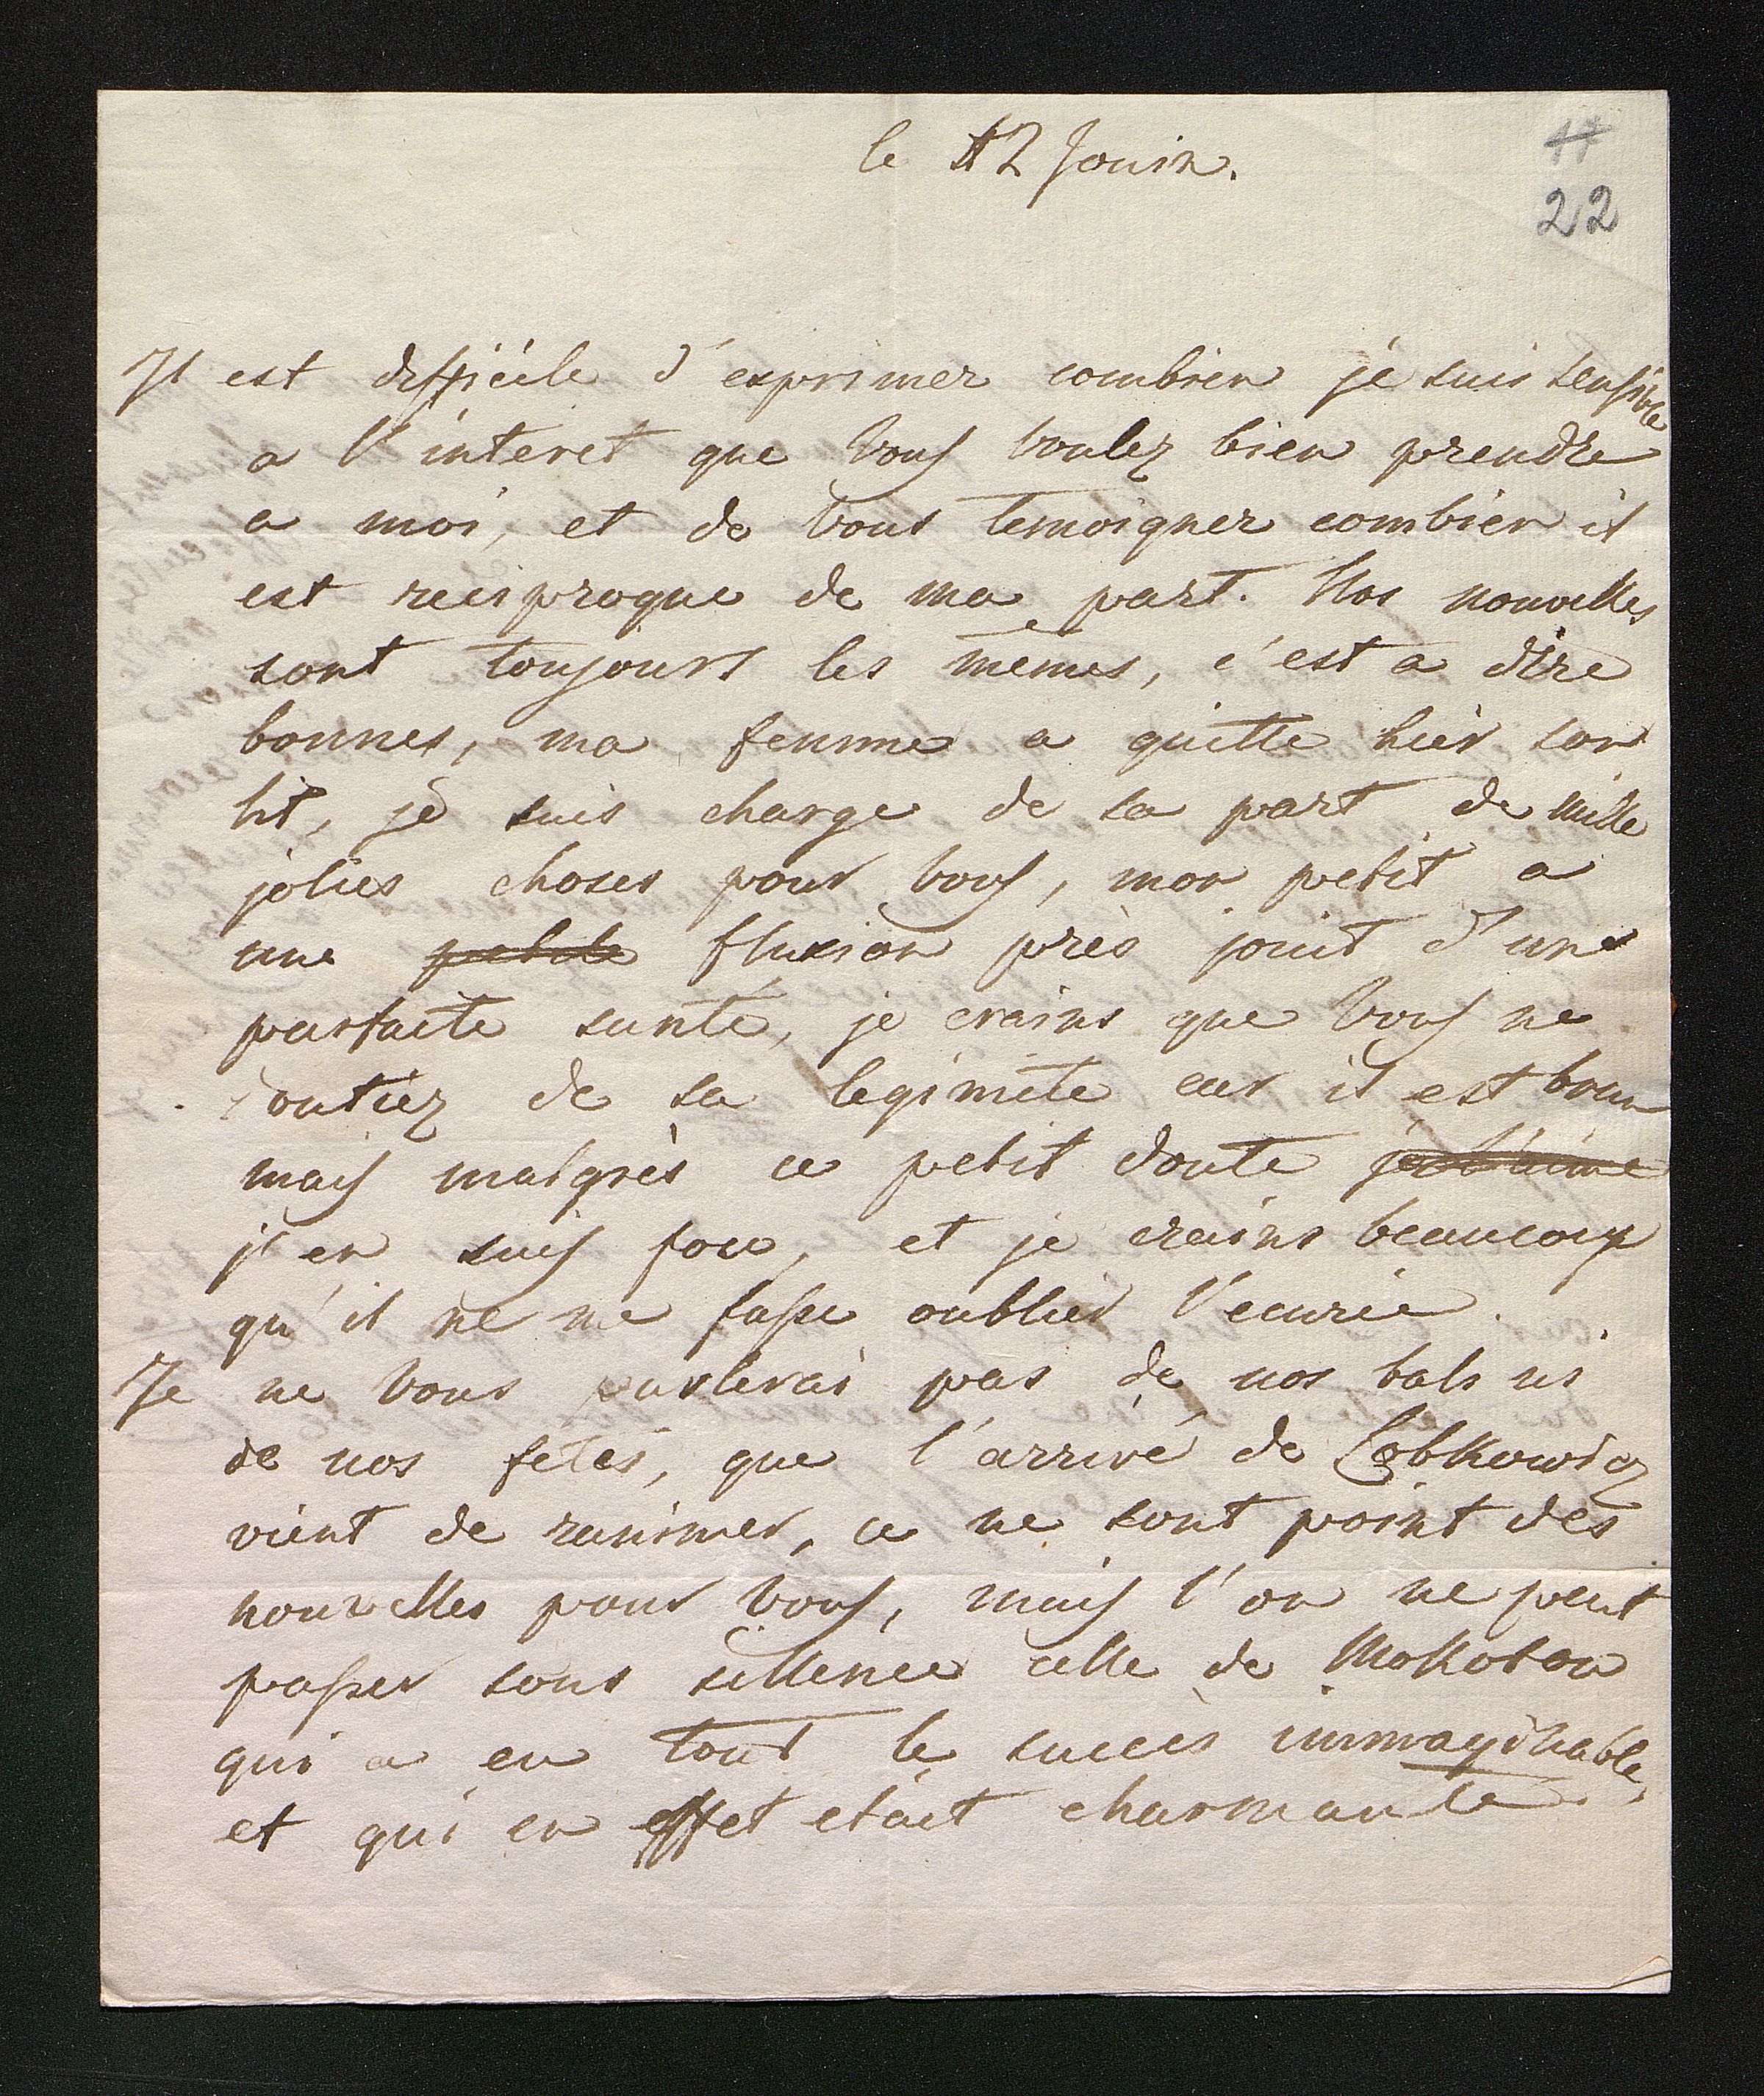 le 12 Jouin.
11
22
Il est difficile d'exprimer combien je suis sensible
a l'interet que vous voulez bien prendre
a moi, et de vous temoigner combien il
est recisproque de ma part. Nos nouvelles
sont toujours les mêmes, c'est a dire
bonnes, ma femme a quitte hier son
lit, je suis charge de sa part de mille
jolies choses pour vous, mon petit a
une petite fluxion près jouit d'une
parfaite sante, je crains que vous ne
doutiez de sa legimite car il est brun
mais malgrès ce petit doute
j'en suis fou, et je crains beaucoup
qu'il ne me fasse oublier l'ecurie.
Je ne vous parlerai pas de nos bals ni
de nos fetes, que l'arrivé de Lobkowicz
vient de ranimer, ce ne sont point des
nouvelles pour vous, mais l'on ne peut
passer sous sillence celle de Mokotow
qui a eu tout le succès immaginable,
et qui en effet etait charmante.